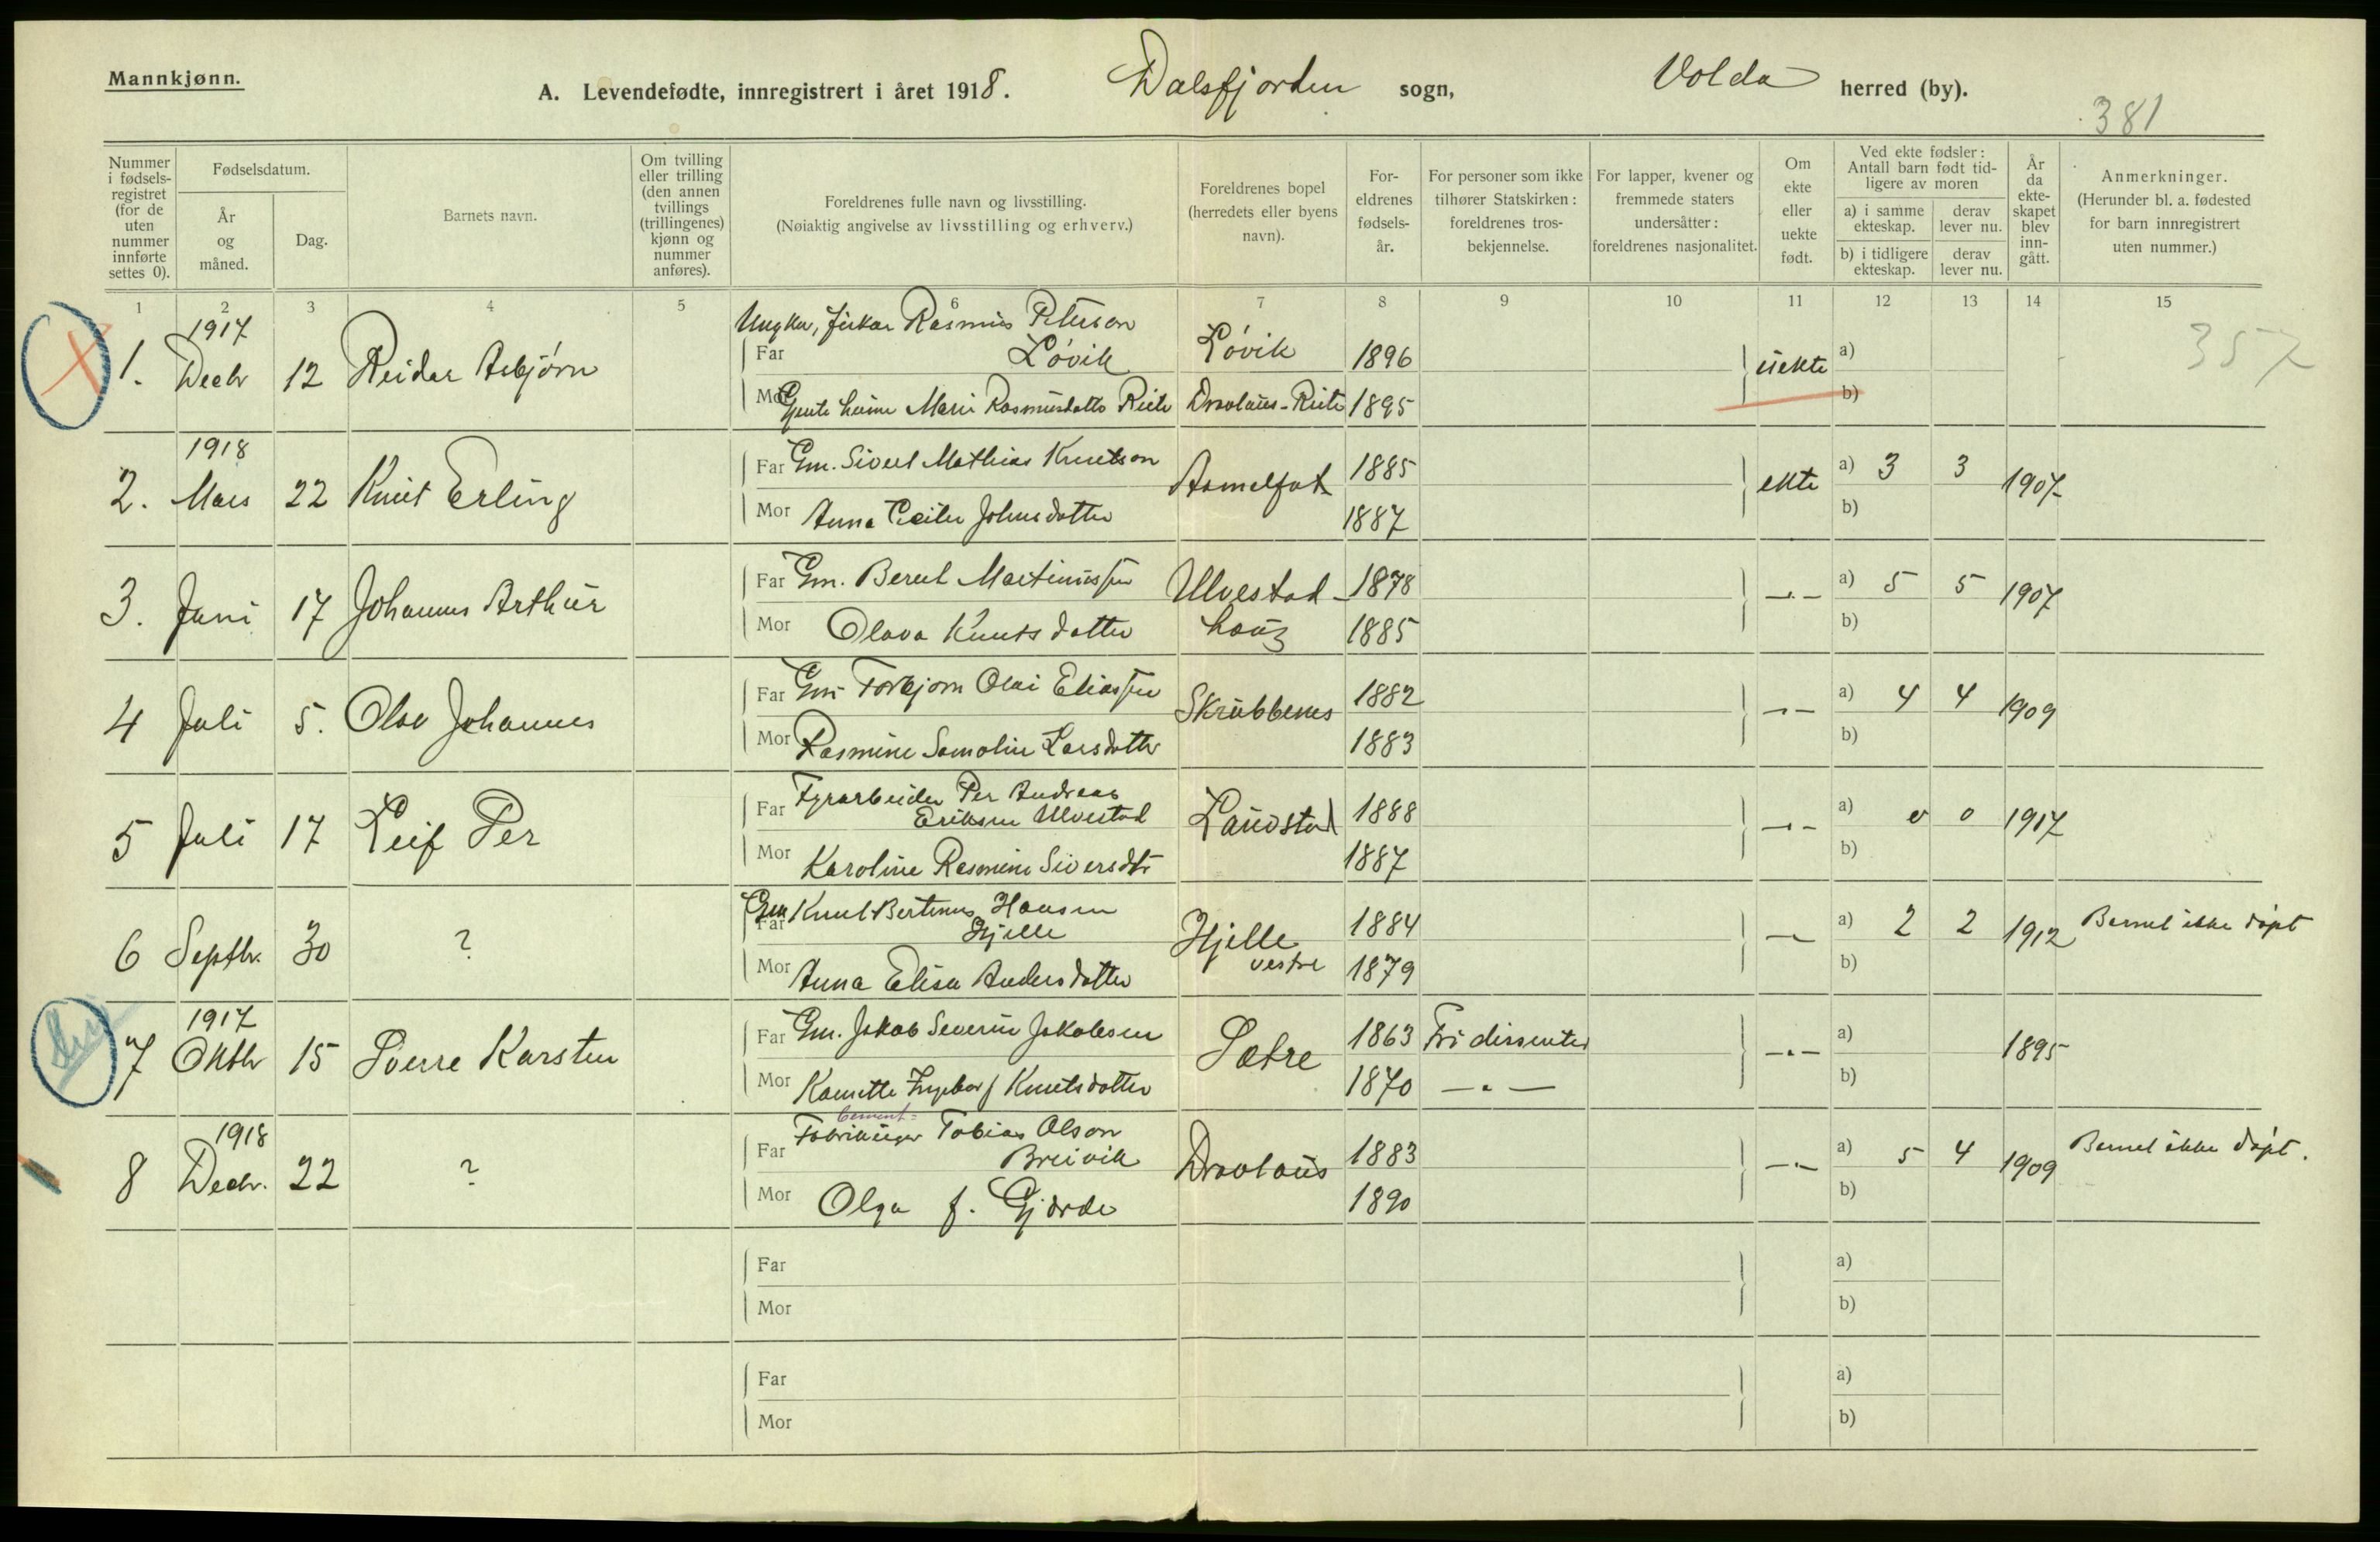 Mannkjønn.
A. Levendefødte, innregistrert i året 1918. Dalsfjorden sogn, Volda herred (by).
381
Nummer i fødselsregistret (for de uten nummer innførte settes 0).
Fødselsdatum.
År og måned.
Dag.
Barnets navn.
Om tvilling eller trilling (den annen tvillings (trillingenes) kjønn og nummer anføres).
Foreldrenes fulle navn og livsstilling.
(Nøiaktig angivelse av livsstilling og erhverv.)
Foreldrenes bopel (herredets eller byens navn).
Foreldrenes fødselsår.
For personer som ikke tilhører Statskirken: foreldrenes trosbekjennelse.
For lapper, kvener og fremmede staters undersåtter: foreldrenes nasjonalitet.
Om ekte eller uekte født.
Ved ekte fødsler: Antall barn født tidligere av moren
a) i samme ekteskap.
derav lever nu.
b) i tidligere ekteskap.
derav lever nu.
År da ekteskapet blev inngått.
Anmerkninger.
(Herunder bl. a. fødested for barn innregistrert uten nummer.)
1 2 3 4 5 6 7 8 9 10 11 12 13 14 15
1917
Ungkar, fisker Rasmus Peterson
1. Decbr 12 Reidar Asbjørn Far Løvik Løvik 1896 uekte a) 357
Mor Gjente Marie Rasmusdatter Reite Dravlaus-Reite 1895 b)
1918
2. Mars 22 Knut Erling Far Gm. Sivert Mathias Knutson Aamelfot 1885 ekte a) 3 3 1907
Mor Anna Johnsdatter 1887 b)
3. Juni 17 Johannes Arthur Far Gm. Berut Martinussen Ulvestad- 1878 —"— a) 5 5 1907
Mor Olava Knutsdatter haug 1885 b)
4 Juli 5. Olav Johannes Far Gm Torbjorn Olai Eliassen Skrubbenes 1882 —"— a) 4 4 1909
Mor Rasmine Samoline Larsdatter 1883 b)
5 Juli 17 Leif Per Far Fyrarbeider Per Andreas
Eriksen Ulvestad Lauvstad 1888 —"— a) 0 0 1917
Mor Karoline Rasmine Siversdtr 1887 b)
6 Septbr. 30 ? Far Gm Knut Bertinus Hansen
Hjelle Hjelle 1884 —"— a) 2 2 1912 Barnet ikke døpt
Mor Anna Elisa Andersdatter vestre 1879 b)
1917
7 Oktbr 15 Sverre Karsten Far Gm. Jakob Severin Jakobsen Sætre 1863 Fri dissenter —"— a) 1895
Mor Ingeborg Knutsdatter 1870 —"— b)
1918
Cement-
8 Decbr. 22 ? Far Tobias Olson
Breivik Dravlaus 1883 —"— a) 5 4 1909 Barnet ikke døpt.
Mor Olga f. Gjerde 1890 b)
Far a)
Mor b)
Far a)
Mor b)